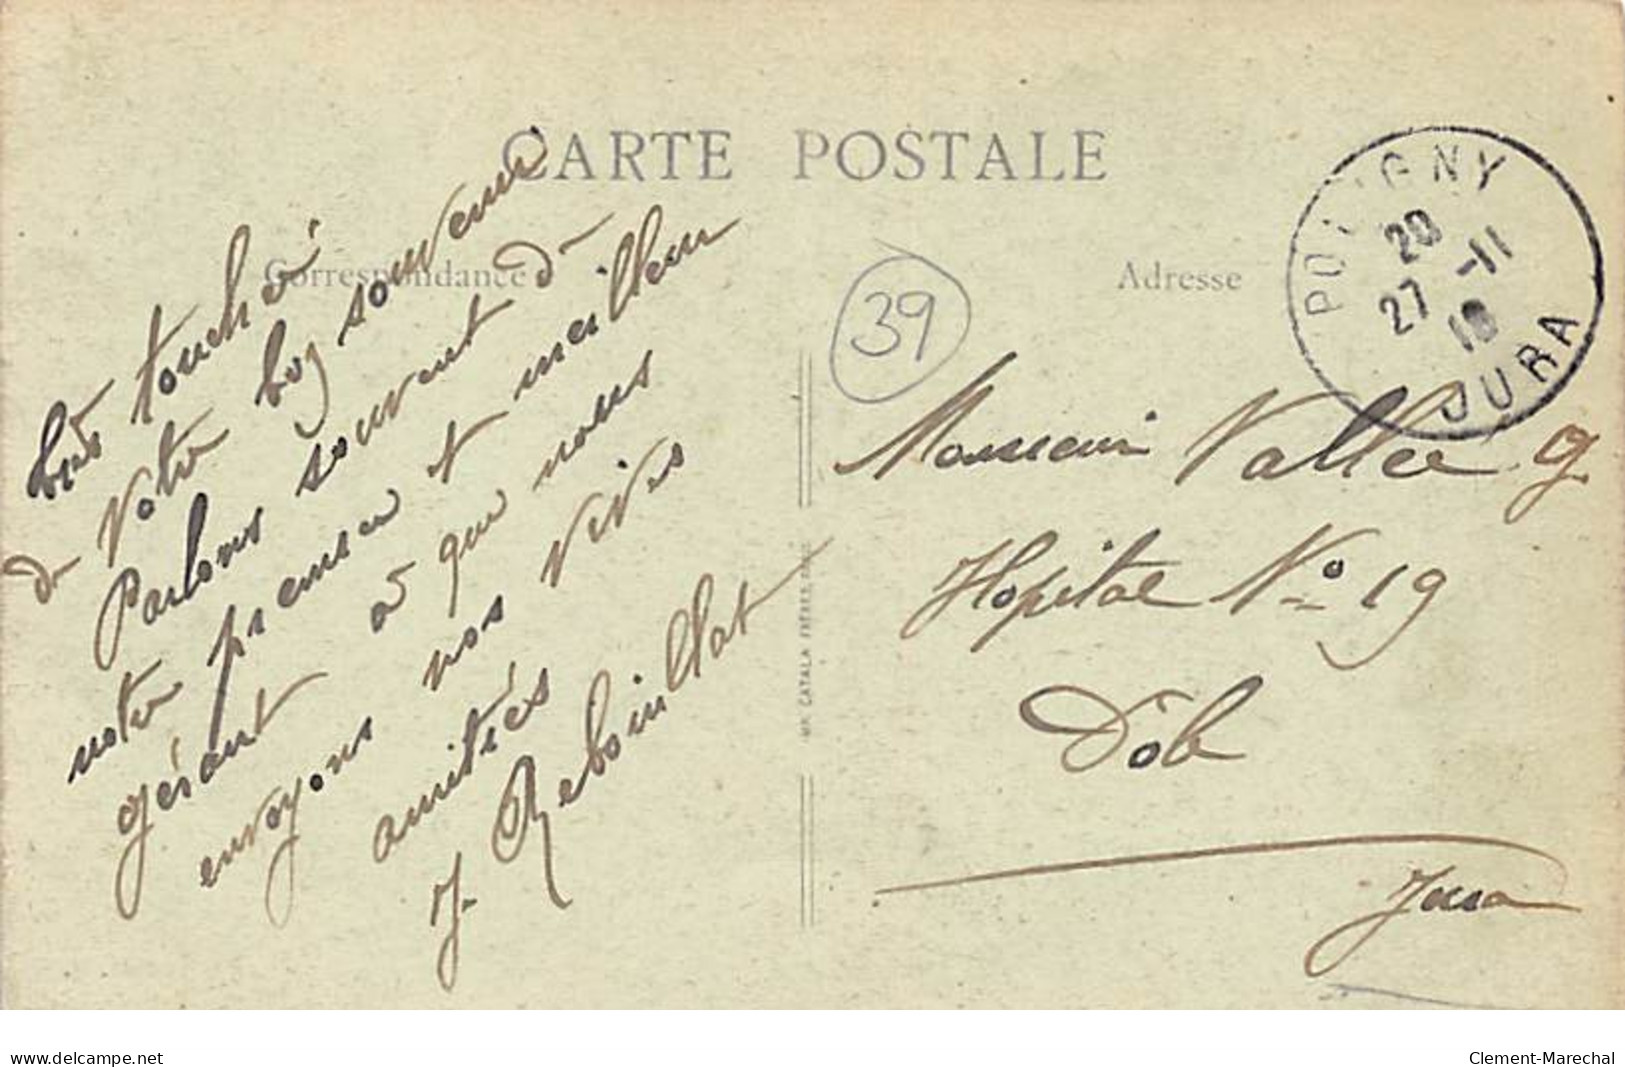 CARTE POSTALE
Correspondance
Adresse
très touché
de votre bon souvenir
Parlons souvent de
notre premier et meilleur
gérant à que nous
envoyons nos vives
amitiés
J. Reboillat
39
POLIGNY
20
27 -11
18
JURA
Monsieur Vallee G
Hopital No 19
Dôle
Jura
IMP. CATALA FRÈRES
www.delcampe.net
Clement-Marechal